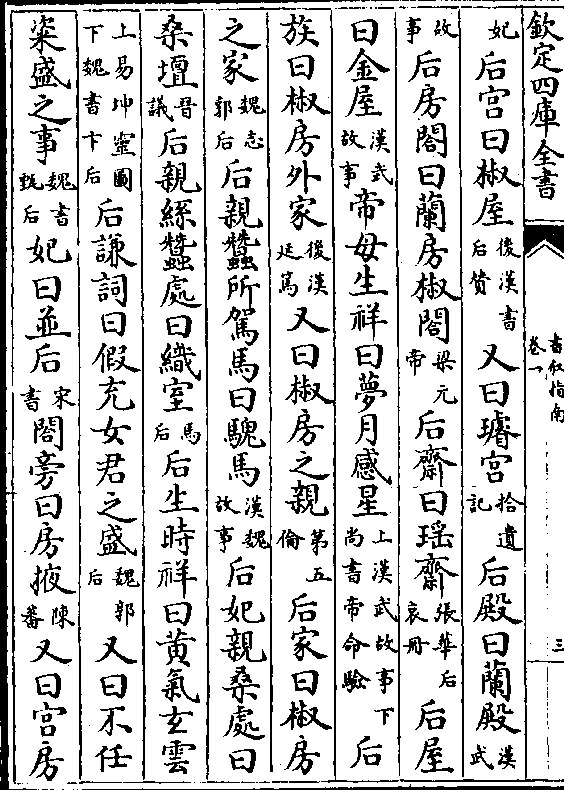 欽定四庫全書
書叙指南
卷一
三
妃后宮曰椒屋後漢書后贊又曰璿宮拾遺記后殿曰蘭殿漢武
故事后房閤曰蘭房椒閤梁元帝后齋曰瑶齋張華后哀册后屋
曰金屋漢武故事帝母生祥曰夢月感星上漢武故事下尚書帝命驗后
族曰椒房外家後漢廷篤又曰椒房之親第五倫后家曰椒房
之家魏志郭后后親蠶所駕馬曰騩馬漢魏故事后妃親桑處曰
桑壇晉議后親繅蠶處曰織室馬后后生時祥曰黄氣玄雲
上易坤靈圖下魏書卞后后謙詞曰假充女君之盛魏郭后又曰不任
粢盛之事魏書甄后妃曰並后宋書閤旁曰房掖陳蕃又曰宮房